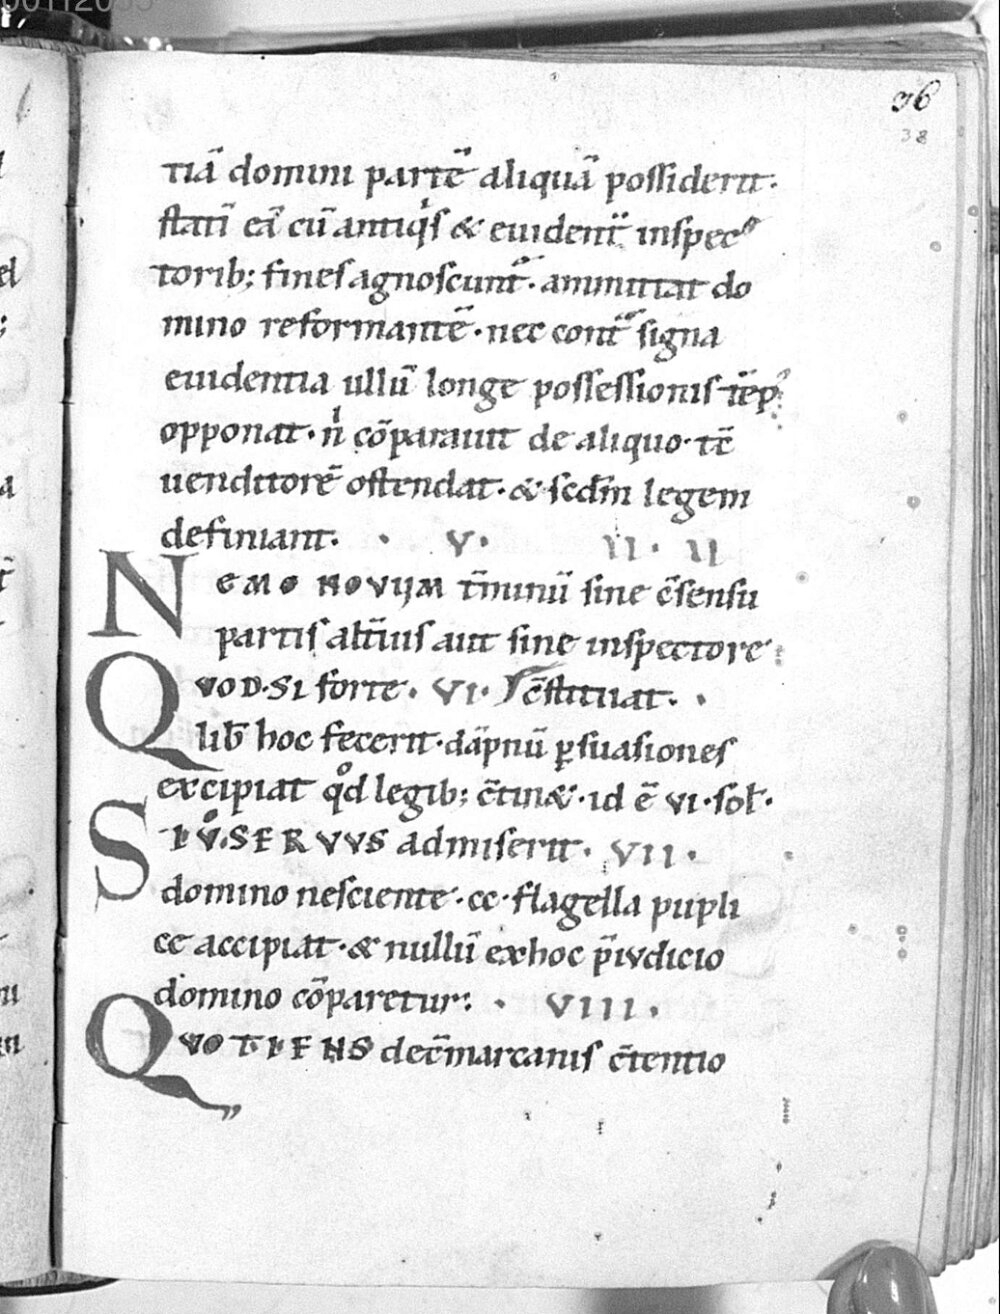 36
38
tiā domini partē aliquā possiderit.
statī eā cū antiq̇s & euident̄ inspec
torib; fines agnoscunt̄. ammittat do
mino reformantē. nec cont̄ signa
euidentia ullū longe possessionis tēp
opponat. n̄ cōparauit de aliquo. tc̄
uenditorē ostendat. & scdm̄ legem
definiant. · V. II · II
NEMO NOVUM t̄minū sine c̄sensu
partis alt̄ius aut sine inspectore
QVOD.SI forte. VI. c̄stituat. ·
lib̄ hoc fecerit. dāpnū p̱suasiones
excipiat qd̊ legib; c̄tin&. id ē VI. sol̄.
SI V̊.SERVVS admiserit. VII.
domino nesciente. cc. flagella pupli
ce accipiat. & nullū exhoc p̄iudicio
domino cōparetur: · VIII.
QVOTIENS dec̄marcanis c̄tentio